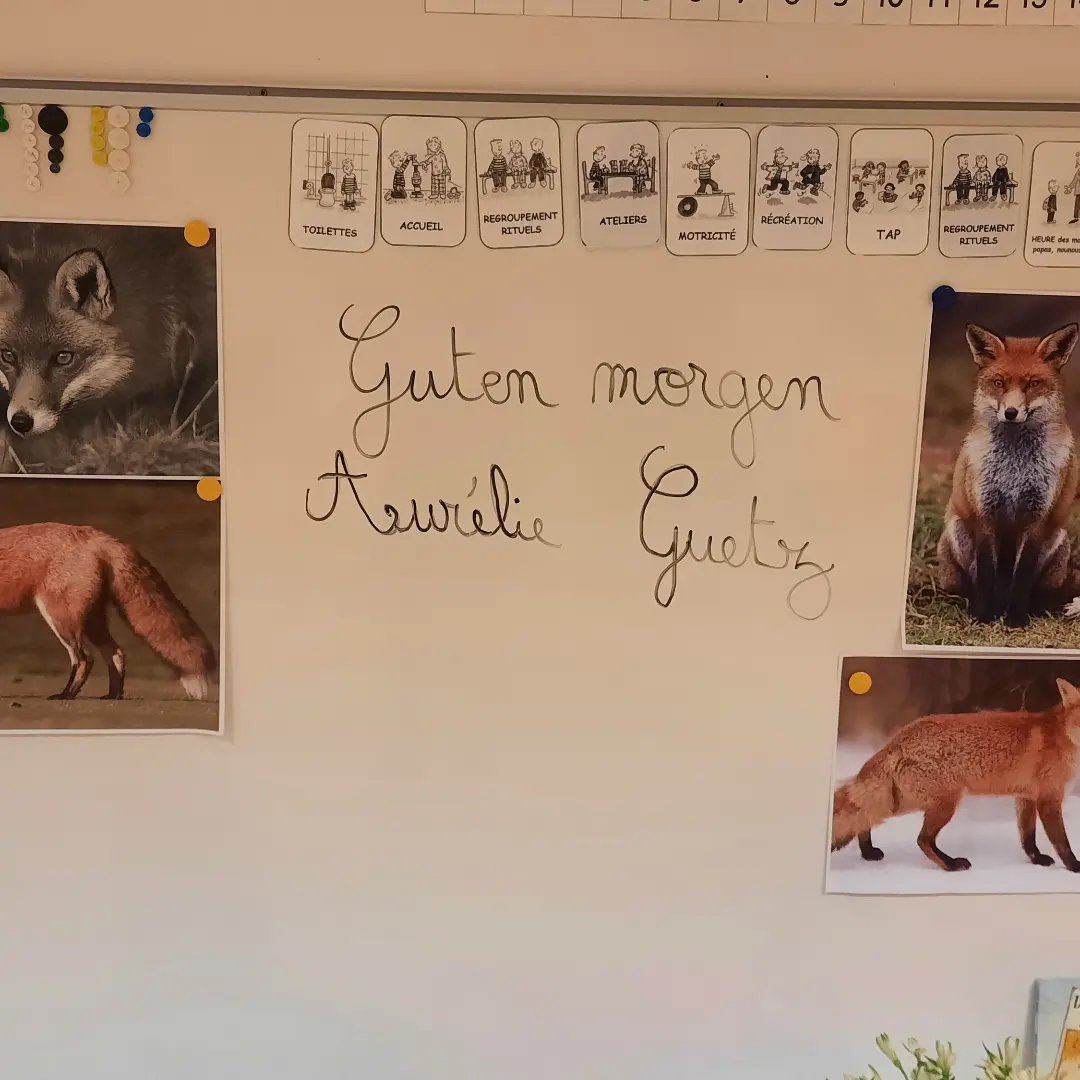 8 9 10 11 12 13
TOILETTES
ACCUEIL
REGROUPEMENT
RITUELS
ATELIERS
MOTRICITÉ
RÉCRÉATION
TAP
REGROUPEMENT
RITUELS
HEURE des
papas,
Guten morgen
Aurélie Guetz